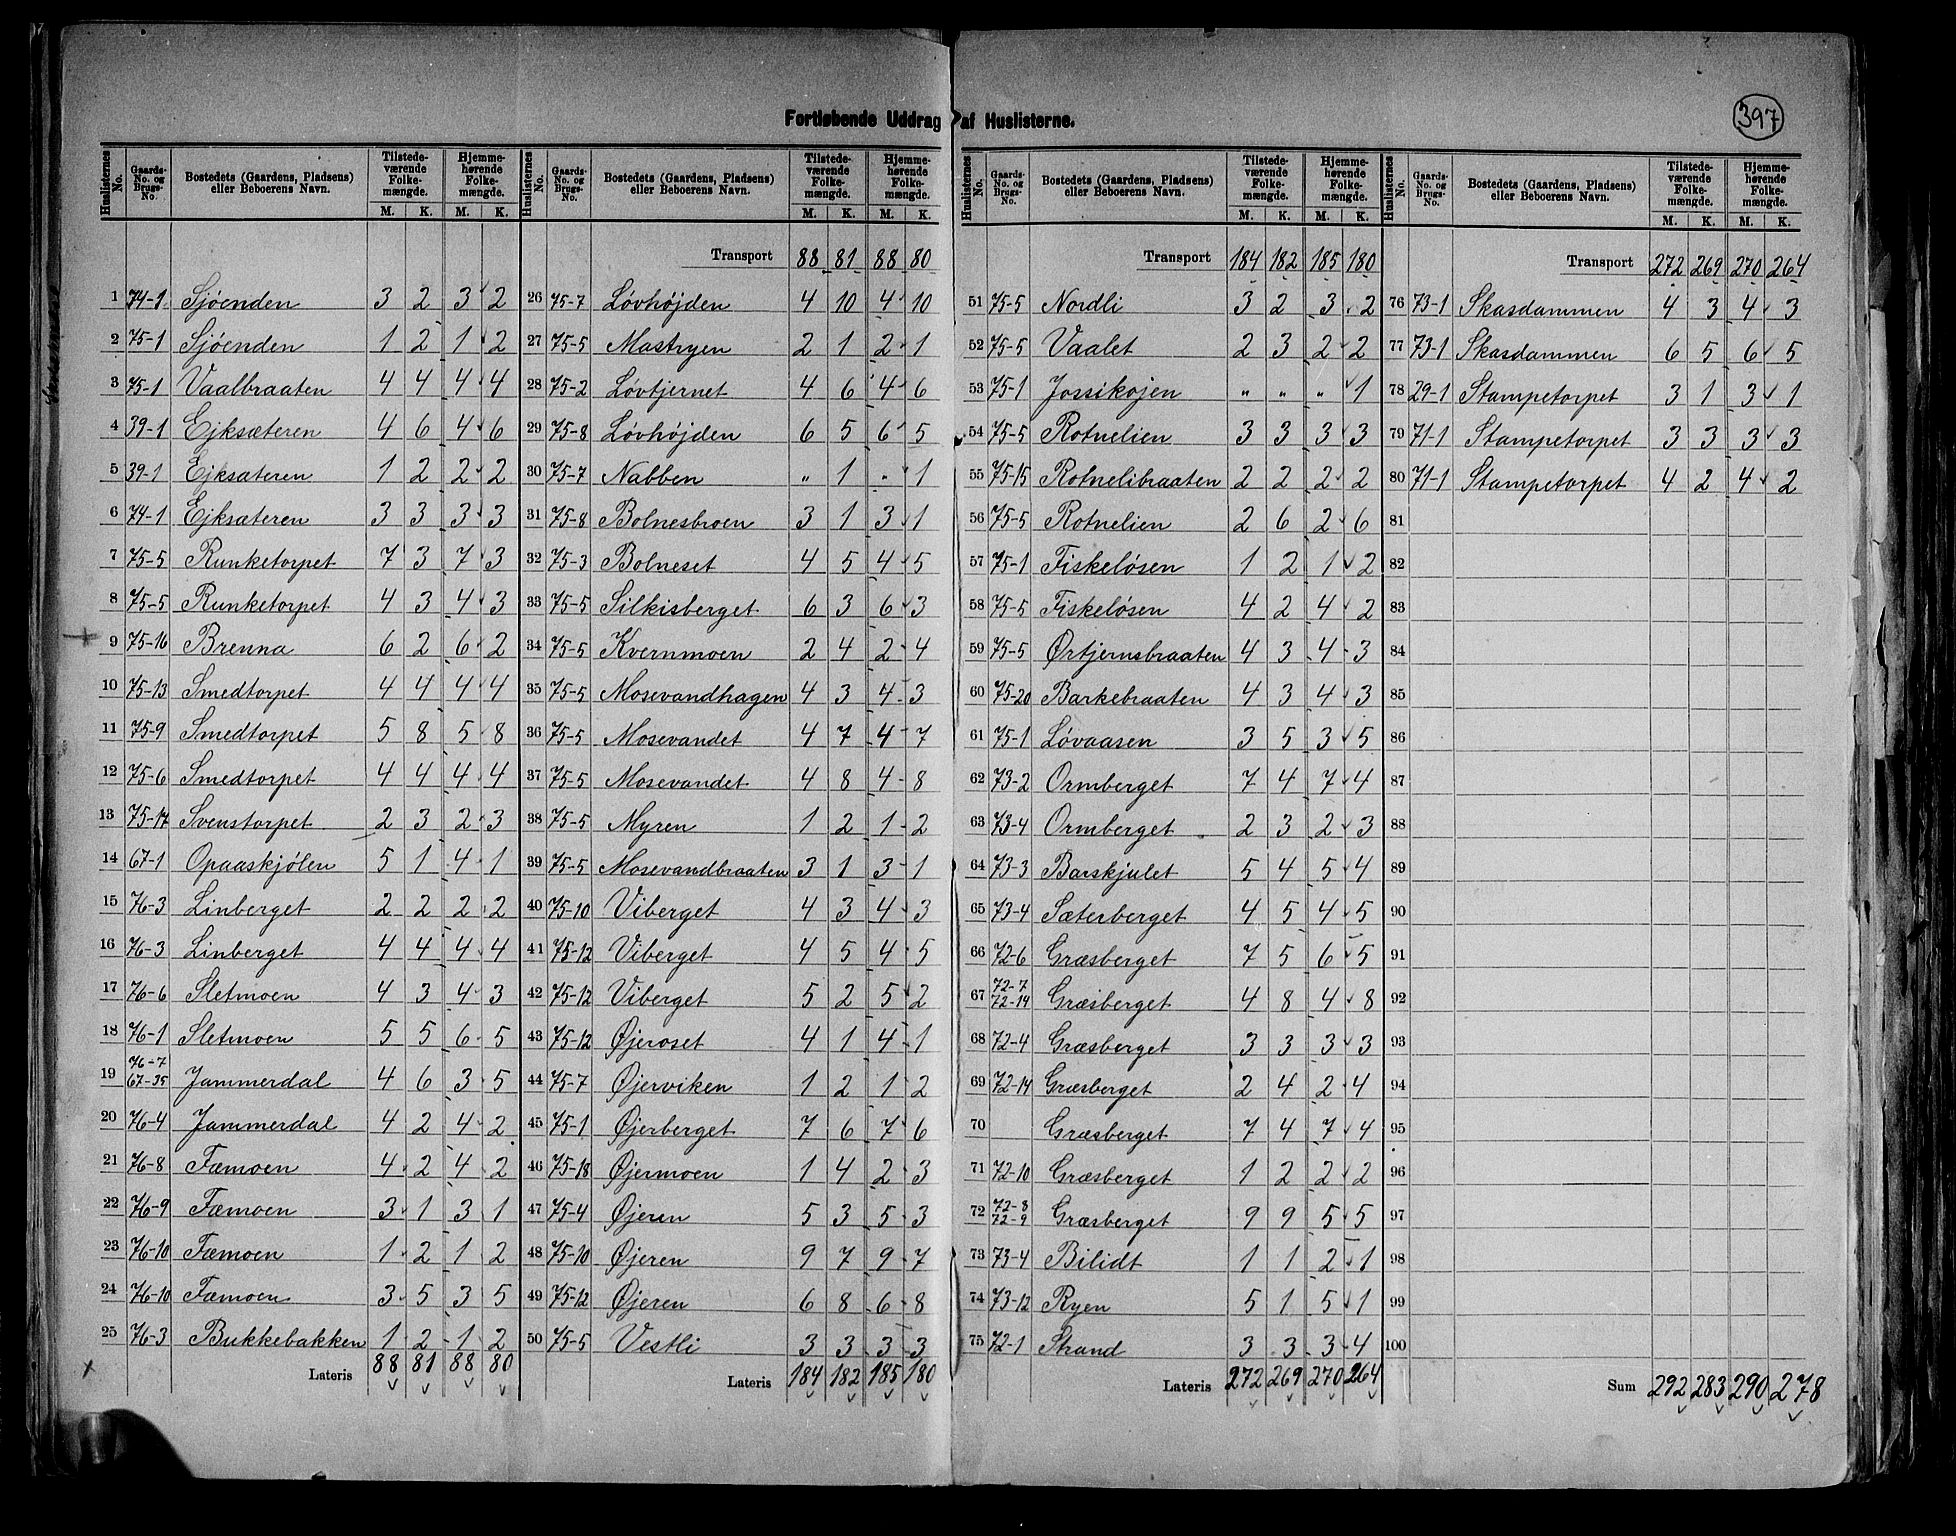 397
Fortløbende Uddrag af Huslisterne.
Huslisternes No. | Gaards-No. og Brugs-No. | Bostedets (Gaardens, Pladsens) eller Beboerens Navn. | Tilstedeværende Folkemængde. M. K. | Hjemmehørende Folkemængde. M. K.
1 74-1 Sjøenden 3 2 3 2
2 75-1 Sjøenden 1 2 1 2
3 75-1 Vaalbraaten 4 4 4 4
4 39-1 Ejksæteren 4 6 4 6
5 39-1 Ejksæteren 1 2 2 2
6 74-1 Ejksæteren 3 3 3 3
7 75-5 Runketorpet 7 3 7 3
8 75-5 Runketorpet 4 3 4 3
9 75-16 Brenna 6 2 6 2
10 75-13 Smedtorpet 4 4 4 4
11 75-9 Smedtorpet 5 8 5 8
12 75-6 Smedtorpet 4 4 4 4
13 75-14 Svenstorpet 2 3 2 3
14 67-1 Opaaskjølen 5 1 4 1
15 76-3 Linberget 2 2 2 2
16 76-3 Linberget 4 4 4 4
17 76-6 Sletmoen 4 3 4 3
18 76-1 Sletmoen 5 5 6 5
19 76-7 67-35 Jammerdal 4 6 3 5
20 76-4 Jammerdal 4 2 4 2
21 76-8 Fæmoen 4 2 4 2
22 76-9 Fæmoen 3 1 3 1
23 76-10 Fæmoen 1 2 1 2
24 76-10 Fæmoen 3 5 3 5
25 76-3 Bukkebakken 1 2 1 2
Lateris 88 81 88 80
Huslisternes No. | Gaards-No. og Brugs-No. | Bostedets (Gaardens, Pladsens) eller Beboerens Navn. | Tilstedeværende Folkemængde. M. K. | Hjemmehørende Folkemængde. M. K.
Transport 88 81 88 80
26 75-7 Løvhøjden 4 10 4 10
27 75-5 Mastryen 2 1 2 1
28 75-2 Løvtjernet 4 6 4 6
29 75-8 Løvhøjden 6 5 6 5
30 75-7 Nabben " 1 " 1
31 75-8 Bolnesbroen 3 1 3 1
32 75-3 Bolneset 4 5 4 5
33 75-5 Silkisberget 6 3 6 3
34 75-5 Kvernmoen 2 4 2 4
35 75-5 Mosevandhagen 4 3 4 3
36 75-5 Mosevandet 4 7 4 7
37 75-5 Mosevandet 4 8 4 8
38 75-5 Myren 1 2 1 2
39 75-5 Mosevandbraaten 3 1 3 1
40 75-10 Viberget 4 3 4 3
41 75-12 Viberget 4 5 4 5
42 75-12 Viberget 5 2 5 2
43 75-12 Øjeroset 4 1 4 1
44 75-7 Øjerviken 1 2 1 2
45 75-1 Øjerberget 7 6 7 6
46 75-18 Øjermoen 1 4 2 3
47 75-4 Øjeren 5 3 5 3
48 75-10 Øjeren 9 7 9 7
49 75-12 Øjeren 6 8 6 8
50 75-5 Vestli 3 3 3 3
Lateris 184 182 185 180
Huslisternes No. | Gaards-No. og Brugs-No. | Bostedets (Gaardens, Pladsens) eller Beboerens Navn. | Tilstedeværende Folkemængde. M. K. | Hjemmehørende Folkemængde. M. K.
Transport 184 182 185 180
51 75-5 Nordli 3 2 3 2
52 75-5 Vaalet 2 3 2 2
53 75-1 Jossikojen " " " 1
54 75-5 Rotnelien 3 3 3 3
55 75-15 Rotnelibraaten 2 2 2 2
56 75-5 Rotnelien 2 6 2 6
57 75-1 Fiskeløsen 1 2 1 2
58 75-5 Fiskeløsen 4 2 4 2
59 75-5 Ørtjernsbraaten 4 3 4 3
60 75-20 Barkebraaten 4 3 4 3
61 75-1 Løvaasen 3 5 3 5
62 73-2 Ormberget 7 4 7 4
63 73-4 Ormberget 2 3 2 3
64 73-3 Barskjulet 5 4 5 4
65 73-4 Sæterberget 4 5 4 5
66 72-6 Græsberget 7 5 6 5
67 72-7 72-14 Græsberget 4 8 4 8
68 72-4 Græsberget 3 3 3 3
69 72-14 Græsberget 2 4 2 4
70 Græsberget 7 4 7 4
71 72-10 Græsberget 1 2 2 2
72 72-8 72-9 Græsberget 9 9 5 5
73 73-4 Bilidt 1 1 2 1
74 73-12 Ryen 5 1 5 1
75 72-1 Strand 3 3 3 4
Lateris 272 269 270 264
Huslisternes No. | Gaards-No. og Brugs-No. | Bostedets (Gaardens, Pladsens) eller Beboerens Navn. | Tilstedeværende Folkemængde. M. K. | Hjemmehørende Folkemængde. M. K.
Transport 272 269 270 264
76 73-1 Skasdammen 4 3 4 3
77 73-1 Skasdammen 6 5 6 5
78 29-1 Stampetorpet 3 1 3 1
79 71-1 Stampetorpet 3 3 3 3
80 71-1 Stampetorpet 4 2 4 2
81
82
83
84
85
86
87
88
89
90
91
92
93
94
95
96
97
98
99
100
Sum 292 283 290 278